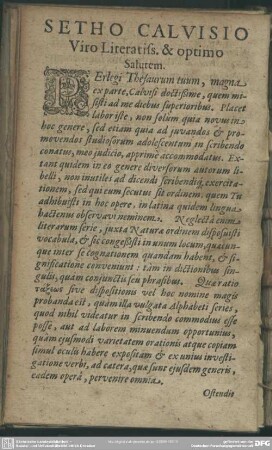 SETHO CALVISIO
Viro Literatiss. & optimo
Salutem.
PErlegi Thesaurum tuum, magna
ex parte, Calvisi doctissime, quem mi-
sisti ad me diebus superioribus. Placet
labor iste, non solum quia novus in
hoc genere, sed etiam quia ad juvandos & pro-
movendos studiosorum adolescentum in scribendo
conatus, meo judicio, apprimè accommodatus. Ex-
tant quidem in eo genere diversorum autorum li-
belli, non inutiles ad dicendi scribendiq; exercita-
tionem, sed qui eum secutus sit ordinem, quem Tu
adhibuisti in hoc opere, in latina quidem lingua
hactenus observavi neminem. Neglectâ enim
literarum serie, juxta Natura ordinem disposuisti
vocabula, & sic congeßisti in unum locum, quæcun-
que inter se cognationem quandam habent, & si-
gnificatione conveniunt: tàm in dictionibus sin-
gulis, quàm conjunctis seu phrasibus. Quæ ratio
sive dispositionis vel hoc nomine magis
probanda est, quàm illa vulgata Alphabeti series,
quod nihil videatur in scribendo commodius esse
posse, aut ad laborem minuendum opportunius,
quàm ejusmodi varietatem orationis atque copiam
simul oculis habere expositam & ex unius investi-
gatione verbi, ad cætera, quæ sunt ejusdem generis,
eadem operâ, pervenire omnia.
Ostendis